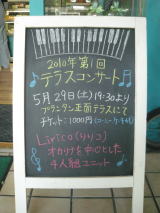 2010年第1回
テラスコンサート
5月29日(土)19:30より
プランタン正面テラスにて
チケット:1000円(コーヒー・ケーキ付)
Lirico(りりこ)
オカリナを中心とした
4人組ユニット